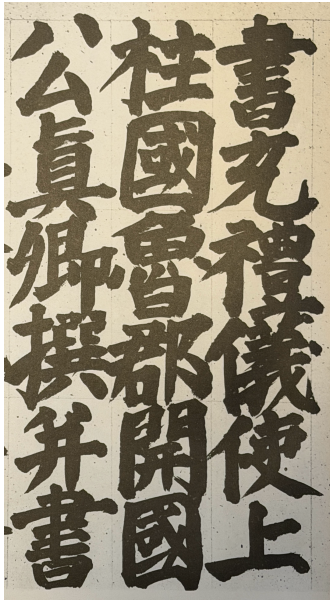 書充禮儀使上
柱國魯郡開國
公真卿撰并書